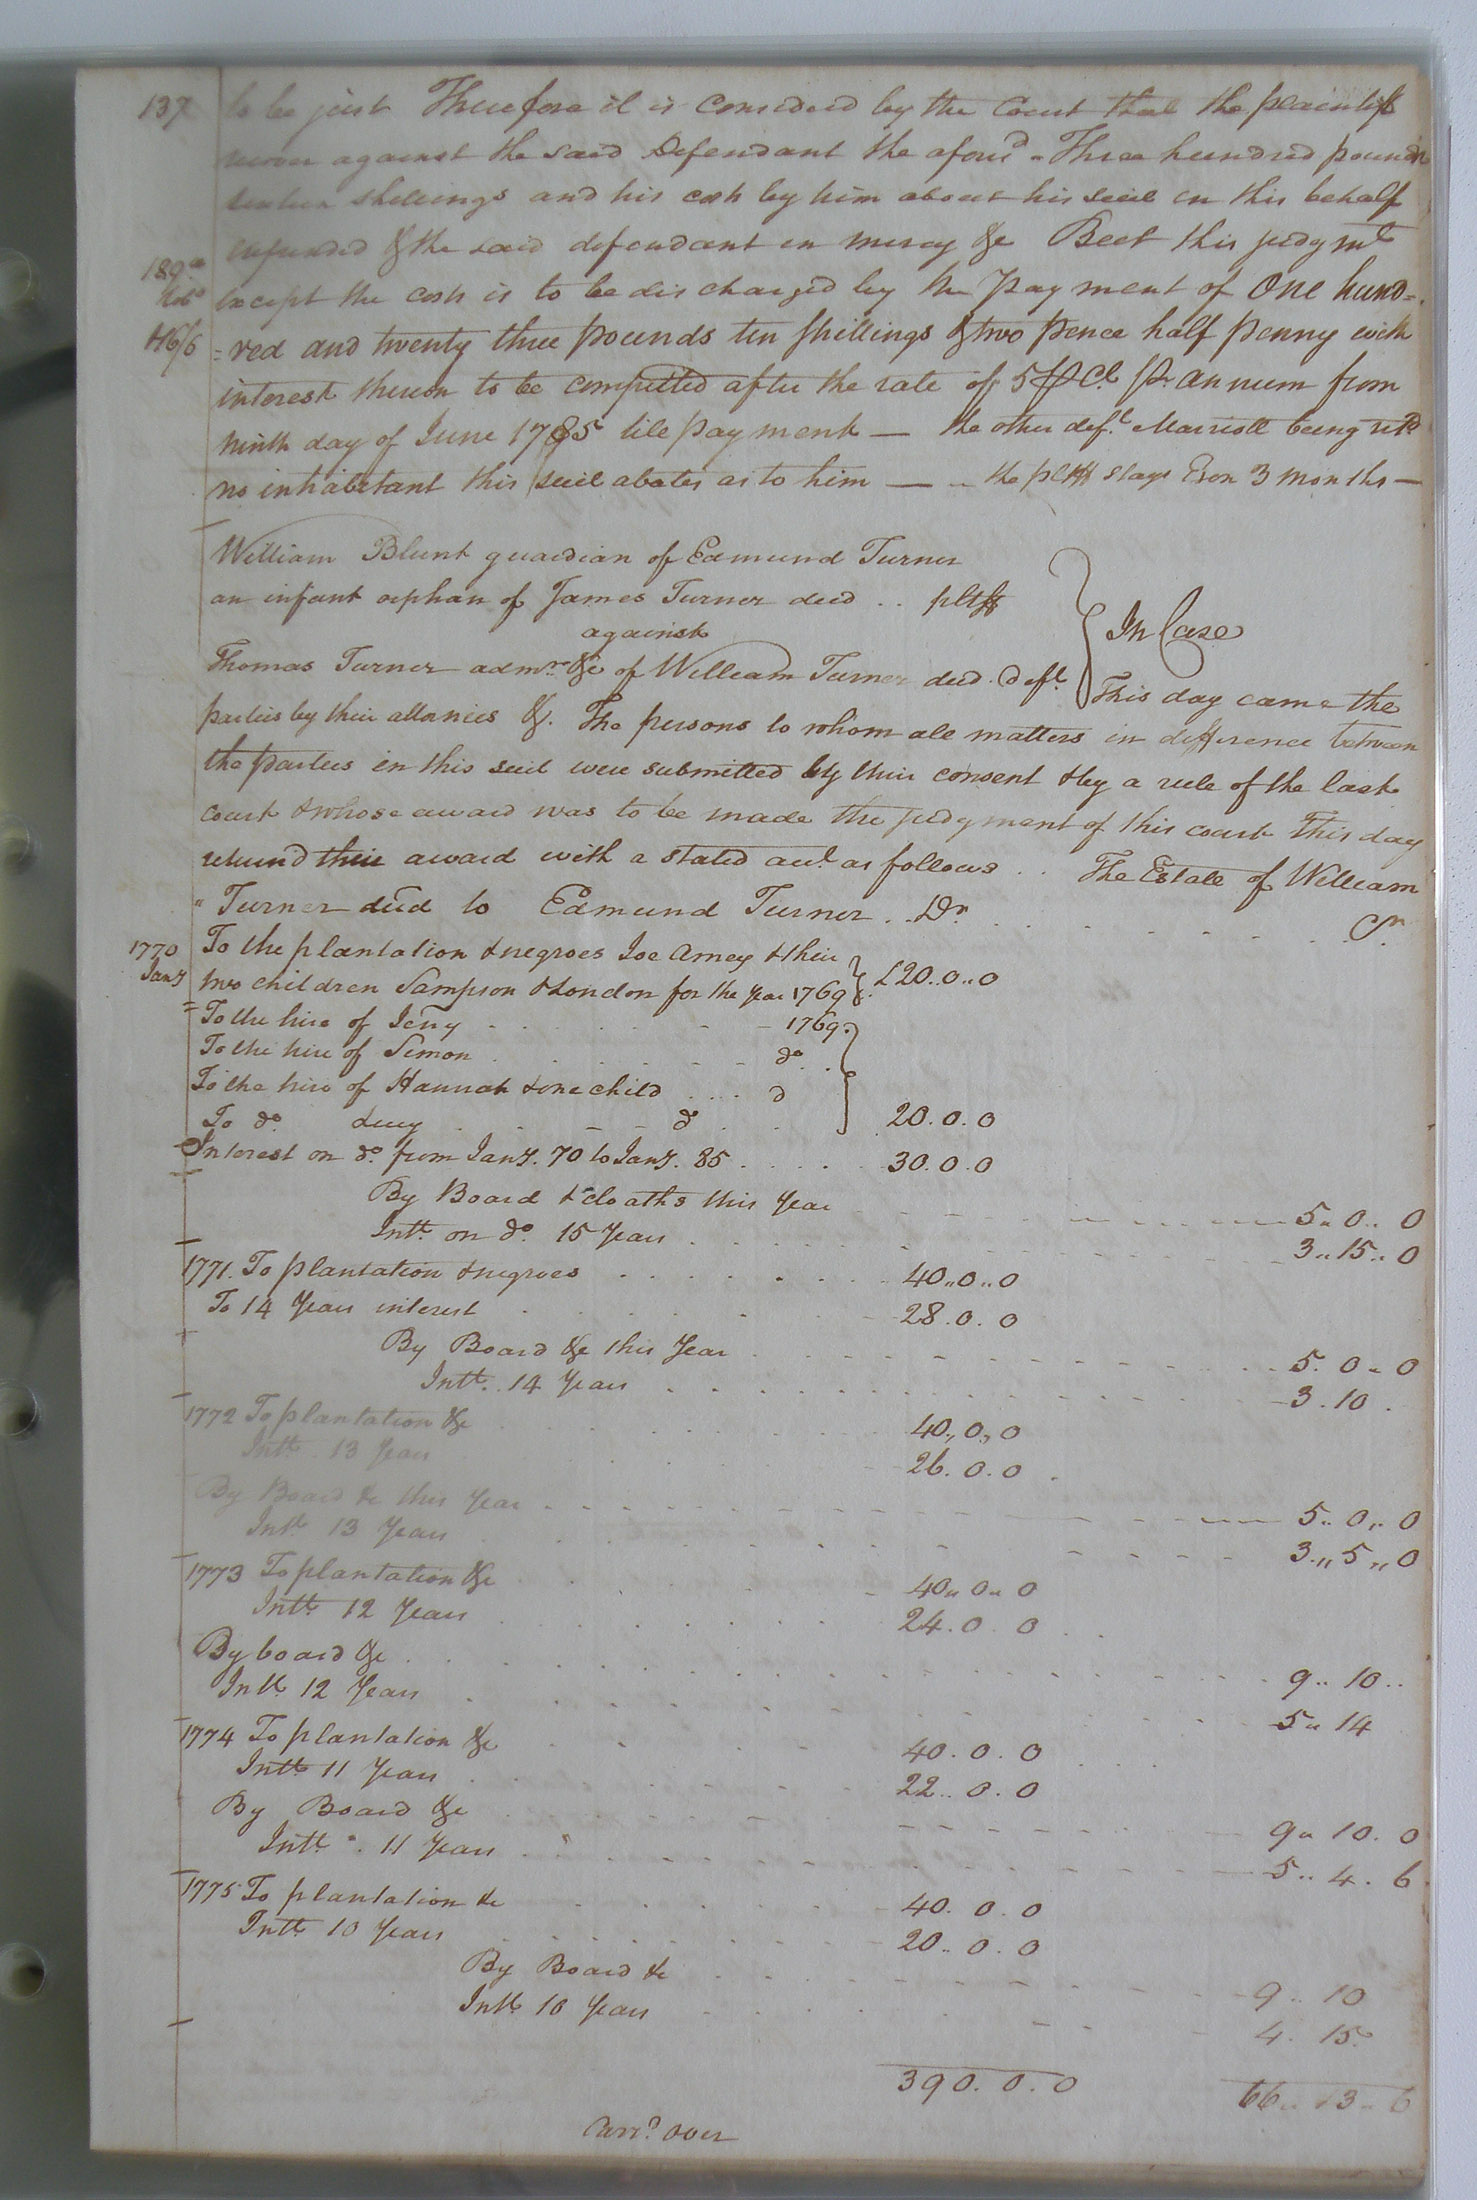 137 to be just Therefore it is considered by the Court that the plaintiff
recover against the said Defendant the afors.d Three hundred pounds
shillings and his costs by him about his suit in this behalf
expended & the said defendant in mercy &c But this judgmt
189
except the costs is to be discharged by the payment of One hund=
=red and twenty three pounds ten shillings & two pence half penny with
interest thereon to be computed after the rate of 5 P Ct. Pr annum from
ninth day of June 1785 till payment — the other deft. Marriott being retd
no inhabitant this suit abates as to him — the pltff stays Exon 3 months —
William Blunt guardian of Edmund Turner
an infant orphan of James Turner decd .. pltff
against
In Case
Thomas Turner admr. &c of William Turner decd. deft.
This day came the
parties by their attornies &. The persons to whom all matters in difference between
the parties in this suit were submitted by their consent & by a rule of the last
court & whose award was to be made the judgment of this court This day
returnd their award with a stated acct. as follows .. The Estate of William
" Turner decd to Edmund Turner .. Dr. Cr.
1770 To the plantation & negroes Joe Amey & their
Jany two children Sampson & London for the year 1769 £20..0..0
To the hire of Jeny 1769.
To the hire of Simon do
To the hire of Hannah & one child d
To do. do 20.0.0
Interest on do. from Jany. 70 to Jany. 85 30.0.0
By Board & cloaths this year 5..0..0
Intt. on do. 15 years 3..15..0
1771. To plantation & negroes 40..0..0
To 14 years interest 28.0.0
By Board &c this year 5.0..0
Intt. 14 years 3.10.
1772 To plantation &c 40,,0,,0
Intt. 13 years 26.0.0
By Board &c this year 5..0,,0
Intt 13 years 3.,,5,,0
1773 To plantation &c 40..0..0
Intt. 12 years 24.0.0
By board &c 9..10..
Intt. 12 years 5..14
1774 To plantation &c 40.0.0
Intt. 11 years 22..0.0
By Board &c 9..10.0
Intt. 11 years 5..4.6
1775 To plantation &c 40.0.0
Intt. 10 years 20..0.0
By Board &c 9..10
Intt. 10 years 4.15
390.0.0 66..13..6
Carrd. over